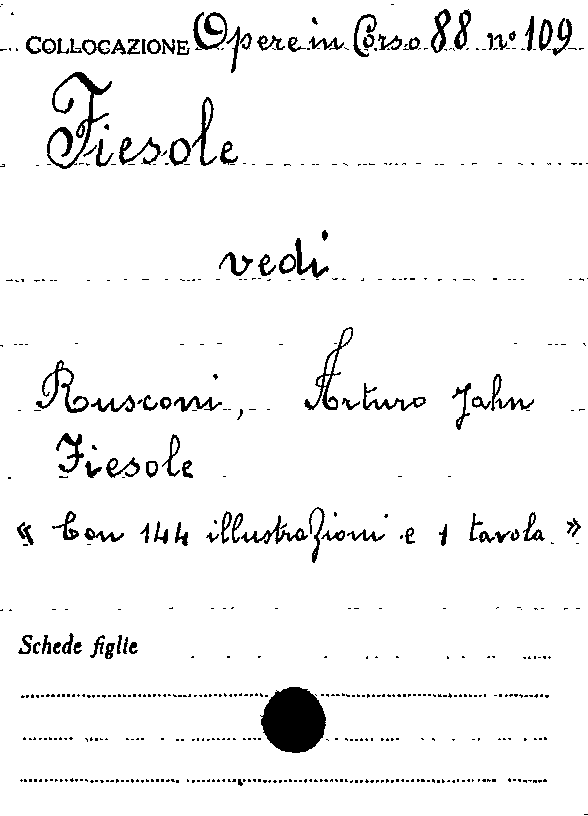 COLLOCAZIONE Opere in Corso 88 n° 109
Fiesole
vedi
Rusconi, Arturo Jahn
Fiesole
« Con 144 illustrazioni e 1 tavola »
Schede figlie